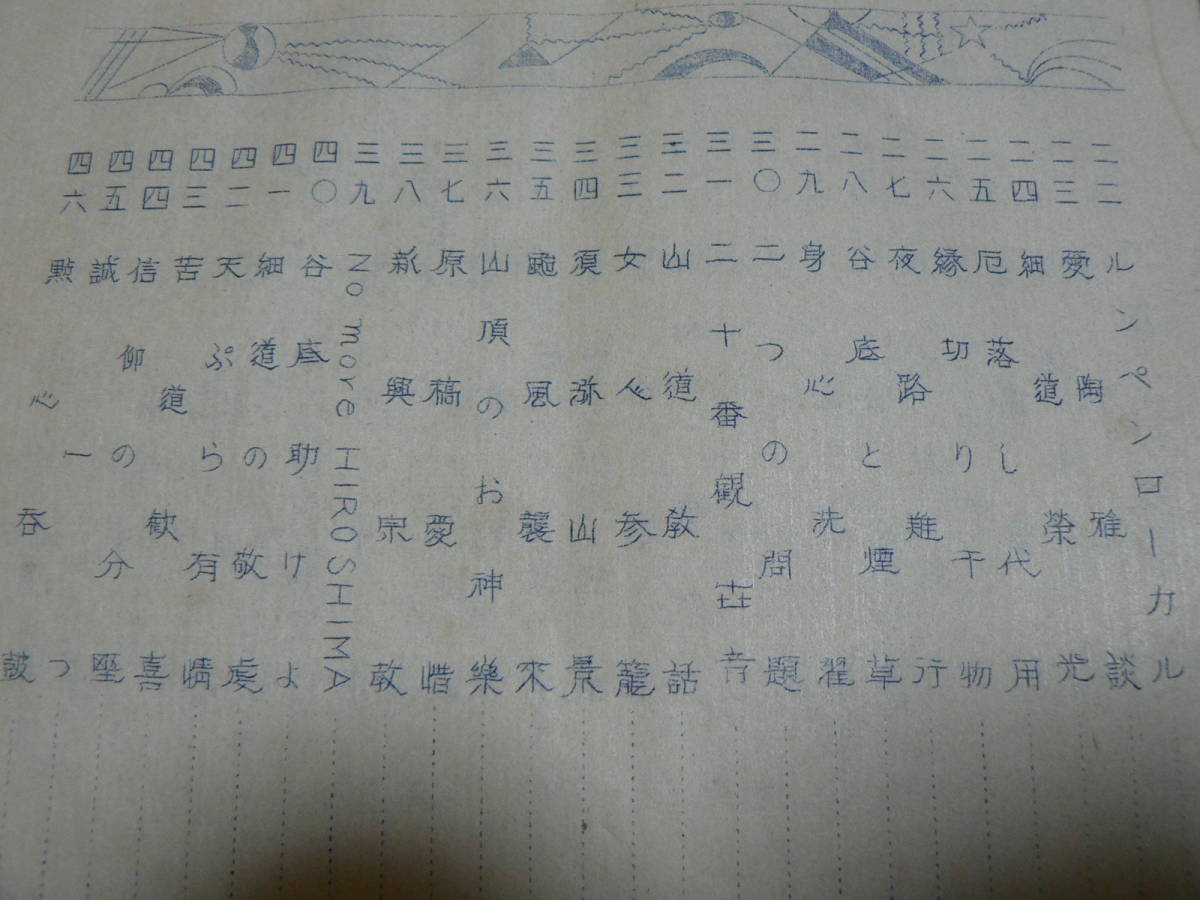 二二 ルンペンローカル
二三 愛陶雅談
二四 細道榮光
二五 厄落し代用
二六 縁切り干物
二七 夜路難行
二八 谷底と煙草
二九 身心洗濯
三〇 二つの問題
三一 二十番観世音
三二 山道教話
三三 女心参籠
三四 須弥山景
三五 颱風襲来
三六 山頂のお神樂
三七 原稿愛惜
三八 新興宗教
三九 No more HIROSHIMA
四〇 谷底助けよ
四一 細道の敬虔
四二 天ぷら有情
四三 苦道歓喜
四四 信仰の分座
四五 誠一つ
四六 呑鼓